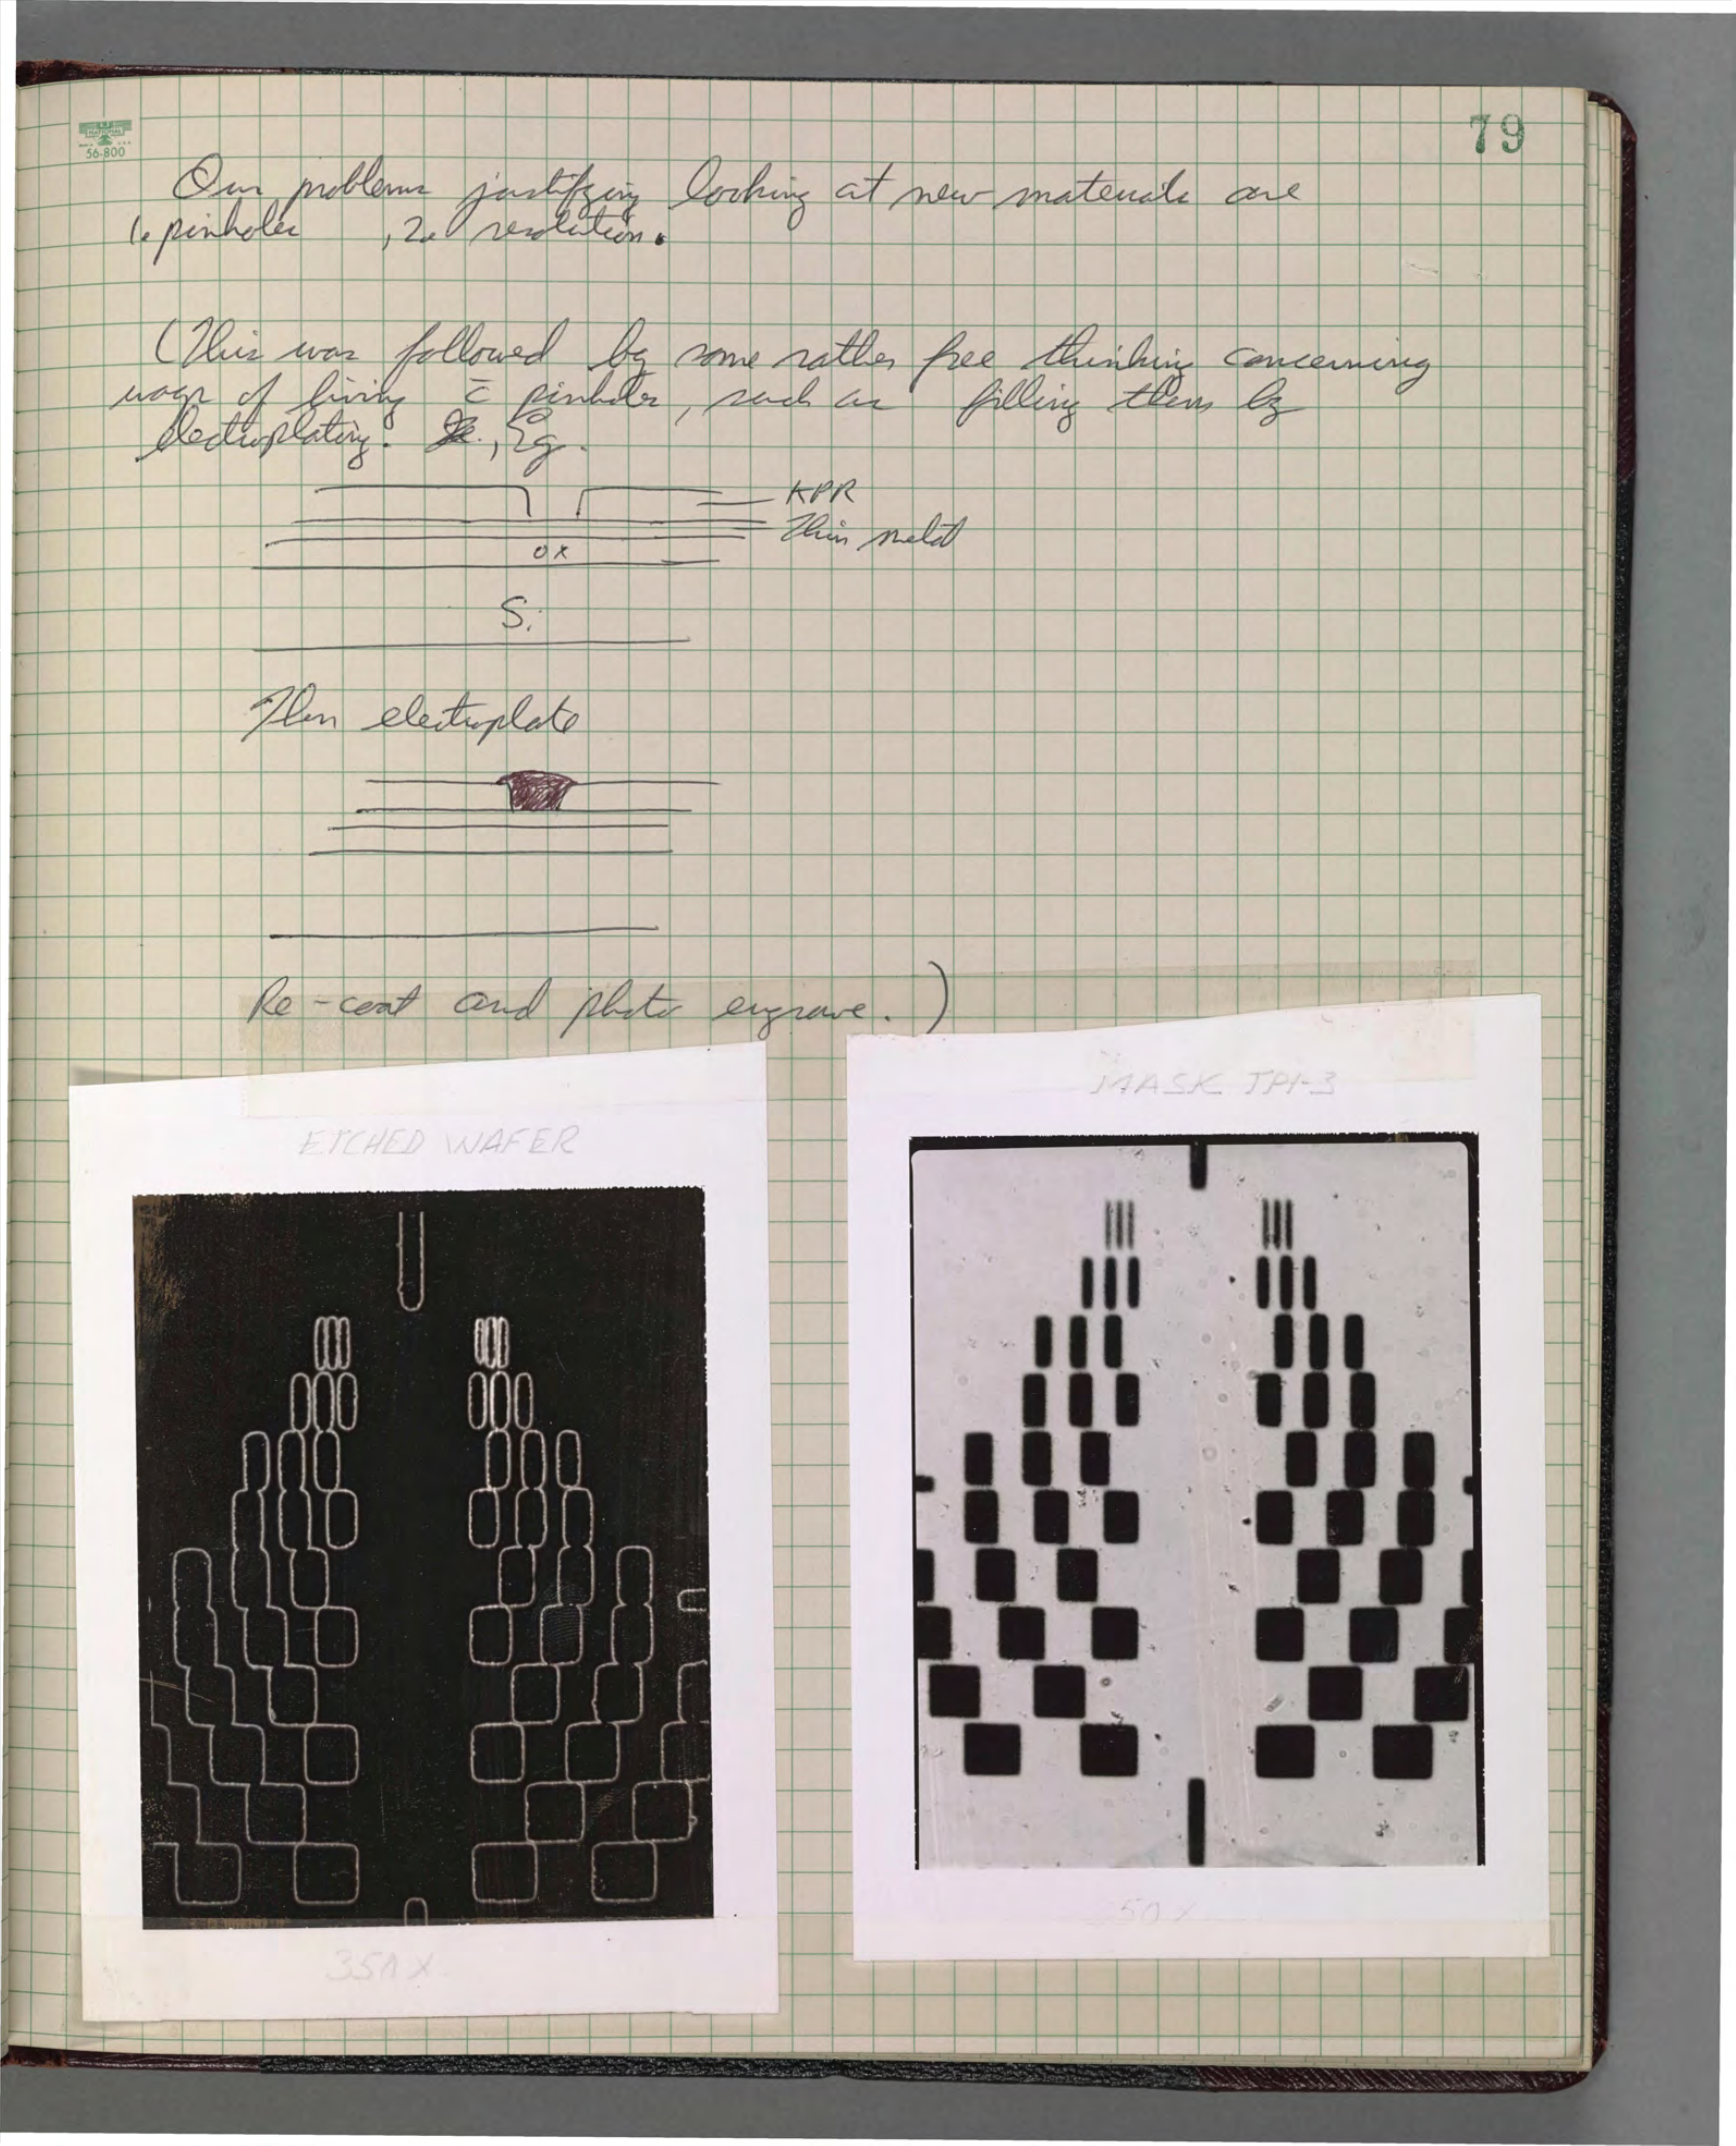 79
NATIONAL
56-800
Our problems justifying looking at new materials are
1. pinholes , 2. resolution.
(This was followed by some rather free thinking concerning
ways of living c̄ pinholes, such as filling them by
electroplating. , Eg.
KPR
Thin metal
ox
Si
Then electroplate
Re-coat and photo engrave. )
MASK TPI-3
ETCHED WAFER
50X
350X